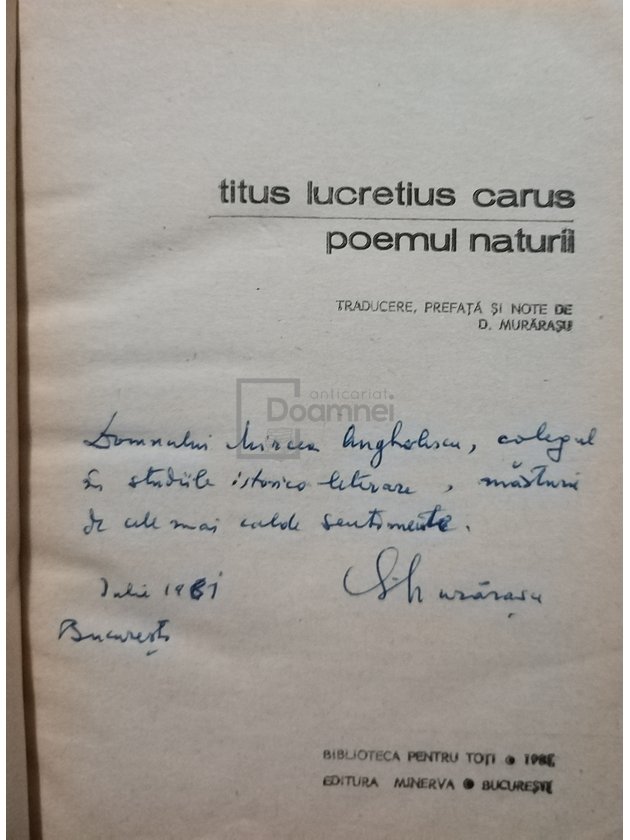 titus lucretius carus
poemul naturii
TRADUCERE, PREFAȚĂ ȘI NOTE DE
D. MURĂRAȘU
anticariat
Doamnei
Domnului Mircea Anghelescu, colegul
în studiile istorico literare, mărturie
de cele mai calde sentimente.
Iulie 1981
D. Murărașu
București
BIBLIOTECA PENTRU TOȚI ●
EDITURA MINERVA ● BUCUREȘTI